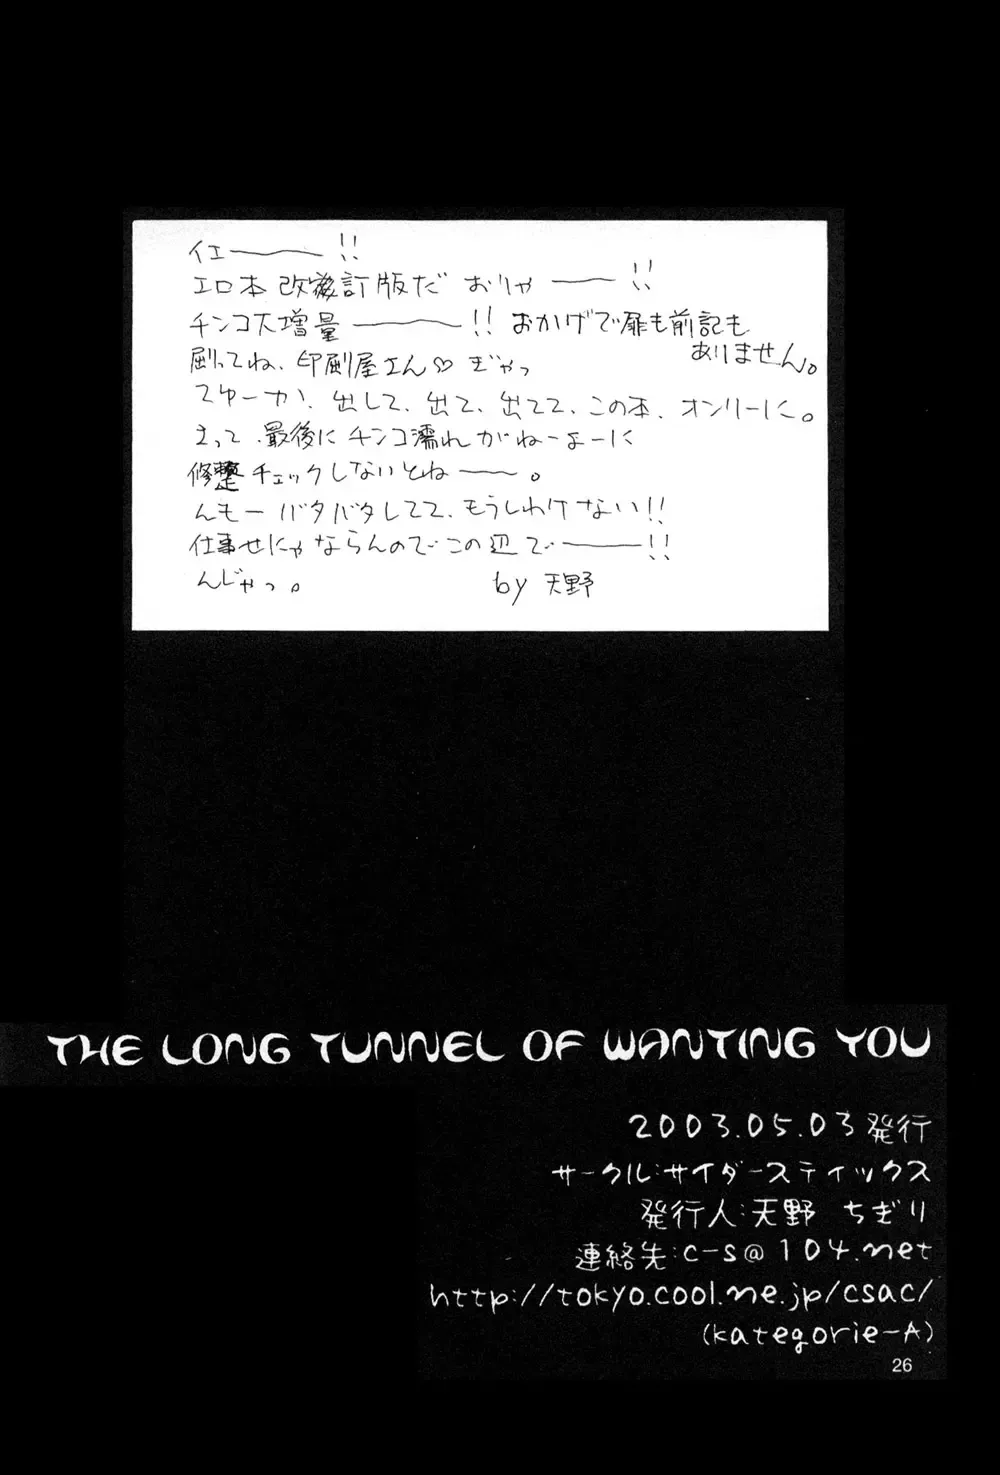 イエー!!
エロ本 改後訂版だ おりゃー!!
チンコ大増量ー!! おかげで扉も前記も
ありません。
刷ってね、印刷屋さん♡ ぎゃっ
てゆーか、出して、出て、出てて、この本、オンリーに。
さって、最後に チンコ濡れがねーよーに
修整チェックしないとねー。
んもー バタバタしてて、もうしわけない!!
仕事せにゃならんのでこの辺でー!!
んじゃっ。 by 天野
THE LONG TUNNEL OF WANTING YOU
2003.05.03発行
サークル:サイダースティックス
発行人:天野 ちぎり
連絡先:c-s@104.net
http://tokyo.cool.ne.jp/csac/
(kategorie-A)
26